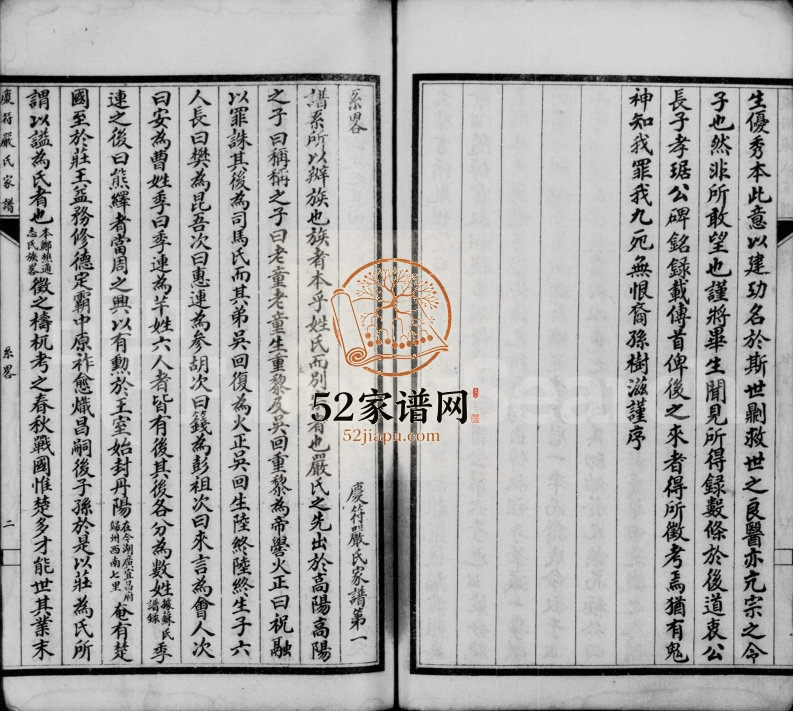 生優秀本此意以建功名於斯世剿救世之良醫亦亢宗之令
子也然非所敢望也謹將畢生聞見所得録數條於後道衷公
長子孝琚公碑銘錄載傳首俾後之來者得所徵考焉猶有鬼
神知我罪我九死無恨裔孫樹滋謹序
慶符嚴氏家譜第一
系畧
譜系所以辨族也族者本乎姓氏而別 者也嚴氏之先出於高陽高陽
之子曰稱稱之子曰老童老童生重黎及吳回重黎為帝嚳火正曰祝融
以罪誅其後為司馬氏而其弟吳回復為火正吳回生陸終陸終生子六
人長曰樊為昆吾次曰惠連為參胡次曰籛為彭祖次曰來言為會人次
曰安為曹姓季曰季連為芊姓六人者皆有後其後各分為數姓據蘇氏譜錄季
連之後曰熊繹者當周之興以有勳於王室始封丹陽在今湖廣宜昌府歸州西南七里奄有楚
國至於莊王益務修德定霸中原祚愈熾昌嗣後子孫於是以莊為氏所
謂以謚為氏者也本鄭樵通志氏族畧徵之檮杌考之春秋戰國惟楚多才能世其業末
慶符嚴氏家譜
系畧
二
52家谱网
52jiapu.com